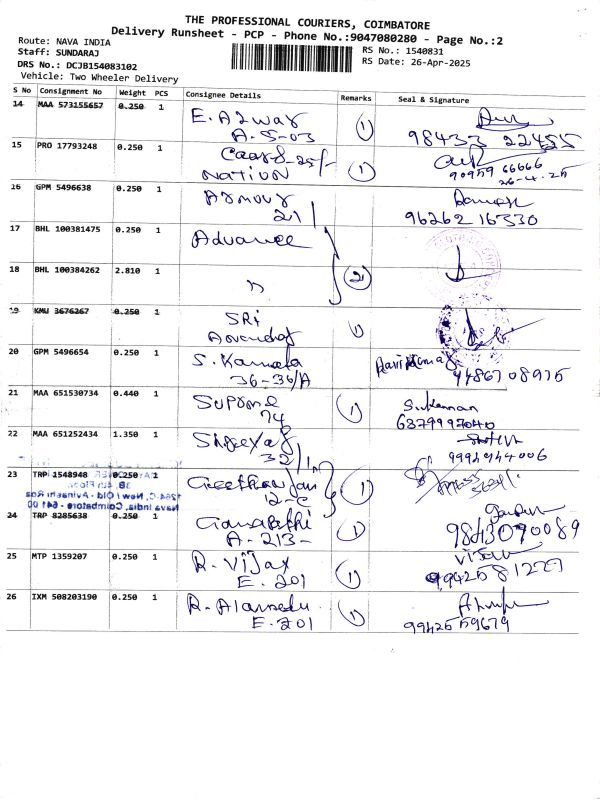 THE PROFESSIONAL COURIERS, COIMBATORE
Delivery Runsheet - PCP - Phone No.:9047080280 - Page No.:2
Route: NAVA INDIA
Staff: SUNDARAJ
DRS No.: DCJB154083102
Vehicle: Two Wheeler Delivery
RS No.: 1540831
RS Date: 26-Apr-2025
S No Consignment No Weight PCS Consignee Details Remarks Seal & Signature
14 MAA 573155657 0.250 1 E. A2way 1
A-5-03 98433 22455
15 PRO 17793248 0.250 1 25/-
NATION 1 90959 66666
26-4-25
16 GPM 5496638 0.250 1 Armour
21 96262 16330
17 BHL 100381475 0.250 1 Advance
18 BHL 100384262 2.810 1 " 2
19 KMU 3676267 0.250 1 SRi 1
20 GPM 5496654 0.250 1 S. Kamala
36-36/A 9486708975
21 MAA 651530734 0.440 1 Supreme 1
74 6379997040
22 MAA 651252434 1.350 1
32 9994944006
23 TRP 1548948 0.250 1 1
12-C
3B, 4th Floor,
1264-C, New / Old - Avinashi Road
Nava India, Coimbatore - 641 00
24 TRP 8285638 0.250 1 Ganapathi 1
A-213- 9843090089
25 MTP 1359207 0.250 1 R. Vijay 1
E. 201 9942581227
26 IXM 508203190 0.250 1 R. Alamelu 1
E. 201 9942559679